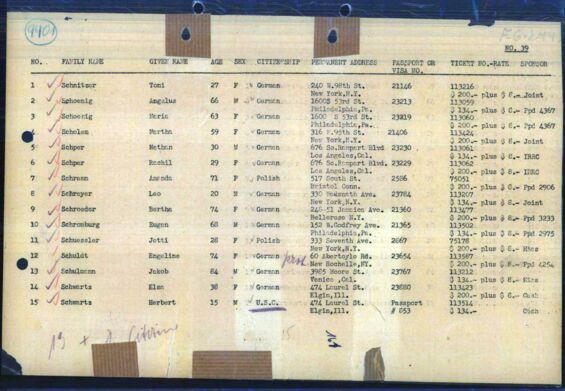 9401
NO. 39
NO. FAMILY NAME GIVEN NAME AGE SEX CITIZENSHIP PERMANENT ADDRESS PASSPORT OR VISA NO. TICKET NO.-RATE SPONSOR
1 Schnitzer Toni 27 F German 240 W.98th St. 21146 113216
New York,N.Y. $ 200.- plus $ 8.- Joint
2 Schoenig Angelus 66 M German 1600 S 53rd St. 23213 113059
Philadelphia,Pa. $ 134.- plus $ 8.- Ppd 4367
3 Schoenig Maria 63 F German 1600 S 53rd St. 23219 113060
Philadelphia,Pa. $ 134.- plus $ 8.- Ppd 4367
4 Scholem Martha 59 F German 316 W.95th St. 21406 113424
New York,N.Y. $ 200.- plus $ 8.- Joint
5 Schper Nathan 30 M German 676 So.Rampart Blvd 23230 113061
Los Angeles,Cal. $ 134.- plus $ 8.- IRRC
6 Schper Rachil 29 F German 676 So.Rampart Blvd. 23229 113062
Los Angeles,Cal. $ 200.- plus $ 8.- IRRC
7 Amanda 71 F Polish 517 South St. 2586 75051
Bristol Conn. $ 200.- plus $ 8.- Ppd 2906
8 Schreyer Leo 20 M German 330 St. 23784 113207
New York,N.Y. $ 134.- plus $ 8.- Joint
9 Schroeder Bertha 74 F German 246-51 Jamaica Ave. 21360 113477
Bellerose N.Y. $ 200.- plus $ 8.- Ppd 3233
10 Schromburg Eugen 68 M German 152 W.Godfrey Ave. 21365 113451
Philadelphia,Pa. $ 134.- plus $ 8.- Ppd 2975
11 Schuessler Jetti 28 F Polish 333 Seventh Ave. 2667 75178
New York,N.Y. $ 200.- plus $ 8.- Hias
12 Schuldt Engeline 74 F German 60 Rd. 23654 113587
New Rochelle,NY. $ 200.- plus $ 8.- Ppd 4254
13 Schulmann Jakob 84 M German 3985 Moore St. 23767 113212
Venice ,Cal. $ 134.- plus $ 8.- Hias
14 Schwartz Elsa 38 F German 474 Laurel St. 23880 113423
Elgin,Ill. $ 200.- plus $ 8.-
15 Schwartz Herbert 15 M U.S.C. 474 Laurel St. Passport 113514
Elgin,Ill. # 853 $ 134.-
15